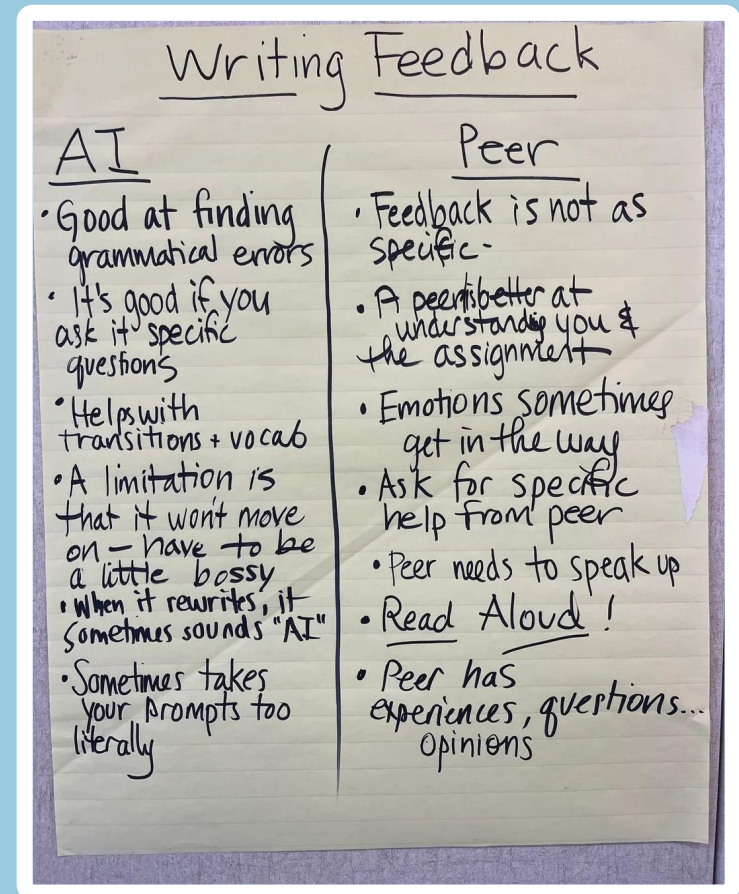 Writing Feedback
AI
• Good at finding
grammatical errors
• It's good if you
ask it specific
questions
• Helps with
transitions + vocab
• A limitation is
that it won't move
on – have to be
a little bossy
• When it rewrites, it
sometimes sounds "AI"
• Sometimes takes
your prompts too
literally
Peer
• Feedback is not as
specific -
• A peer is better at
understanding you &
the assignment
• Emotions sometimes
get in the way
• Ask for specific
help from peer
• Peer needs to speak up
• Read Aloud !
• Peer has
experiences, questions...
opinions